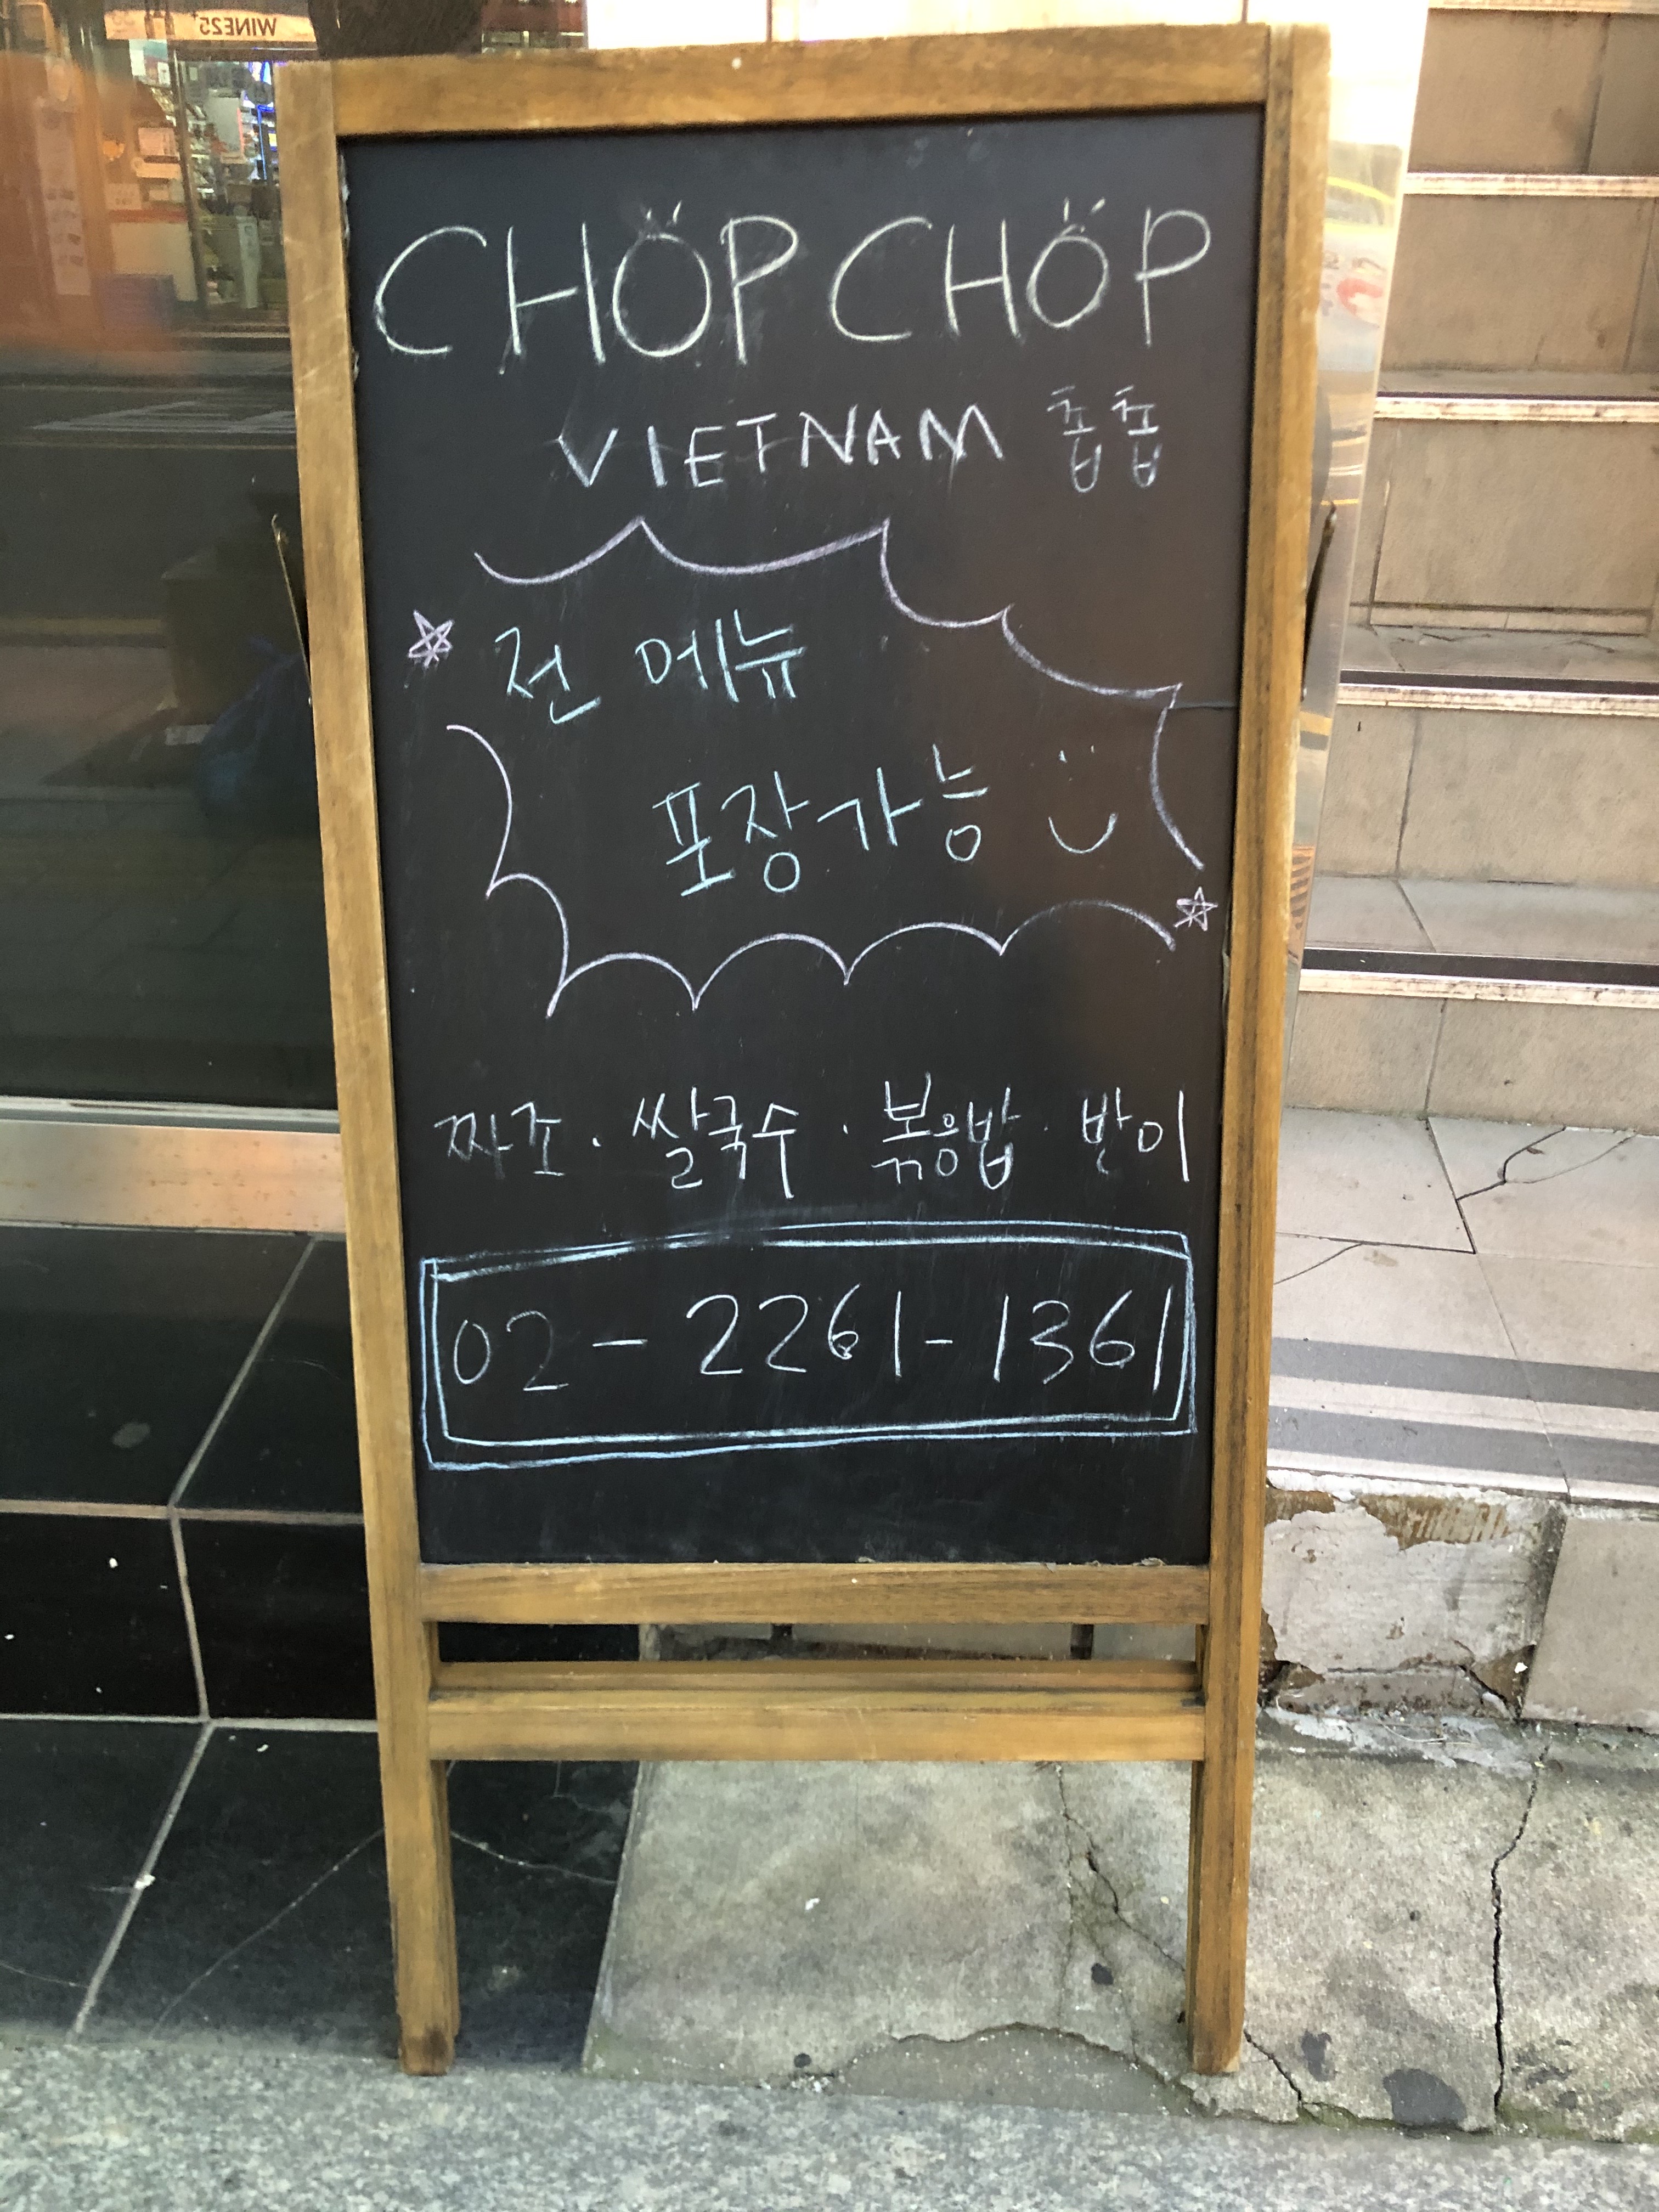 WINE25+
CHÖP CHÖP
VIETNAM 촙촙
전 메뉴
포장가능
짜조 · 쌀국수 · 볶음밥 · 반미
02-2261-1361